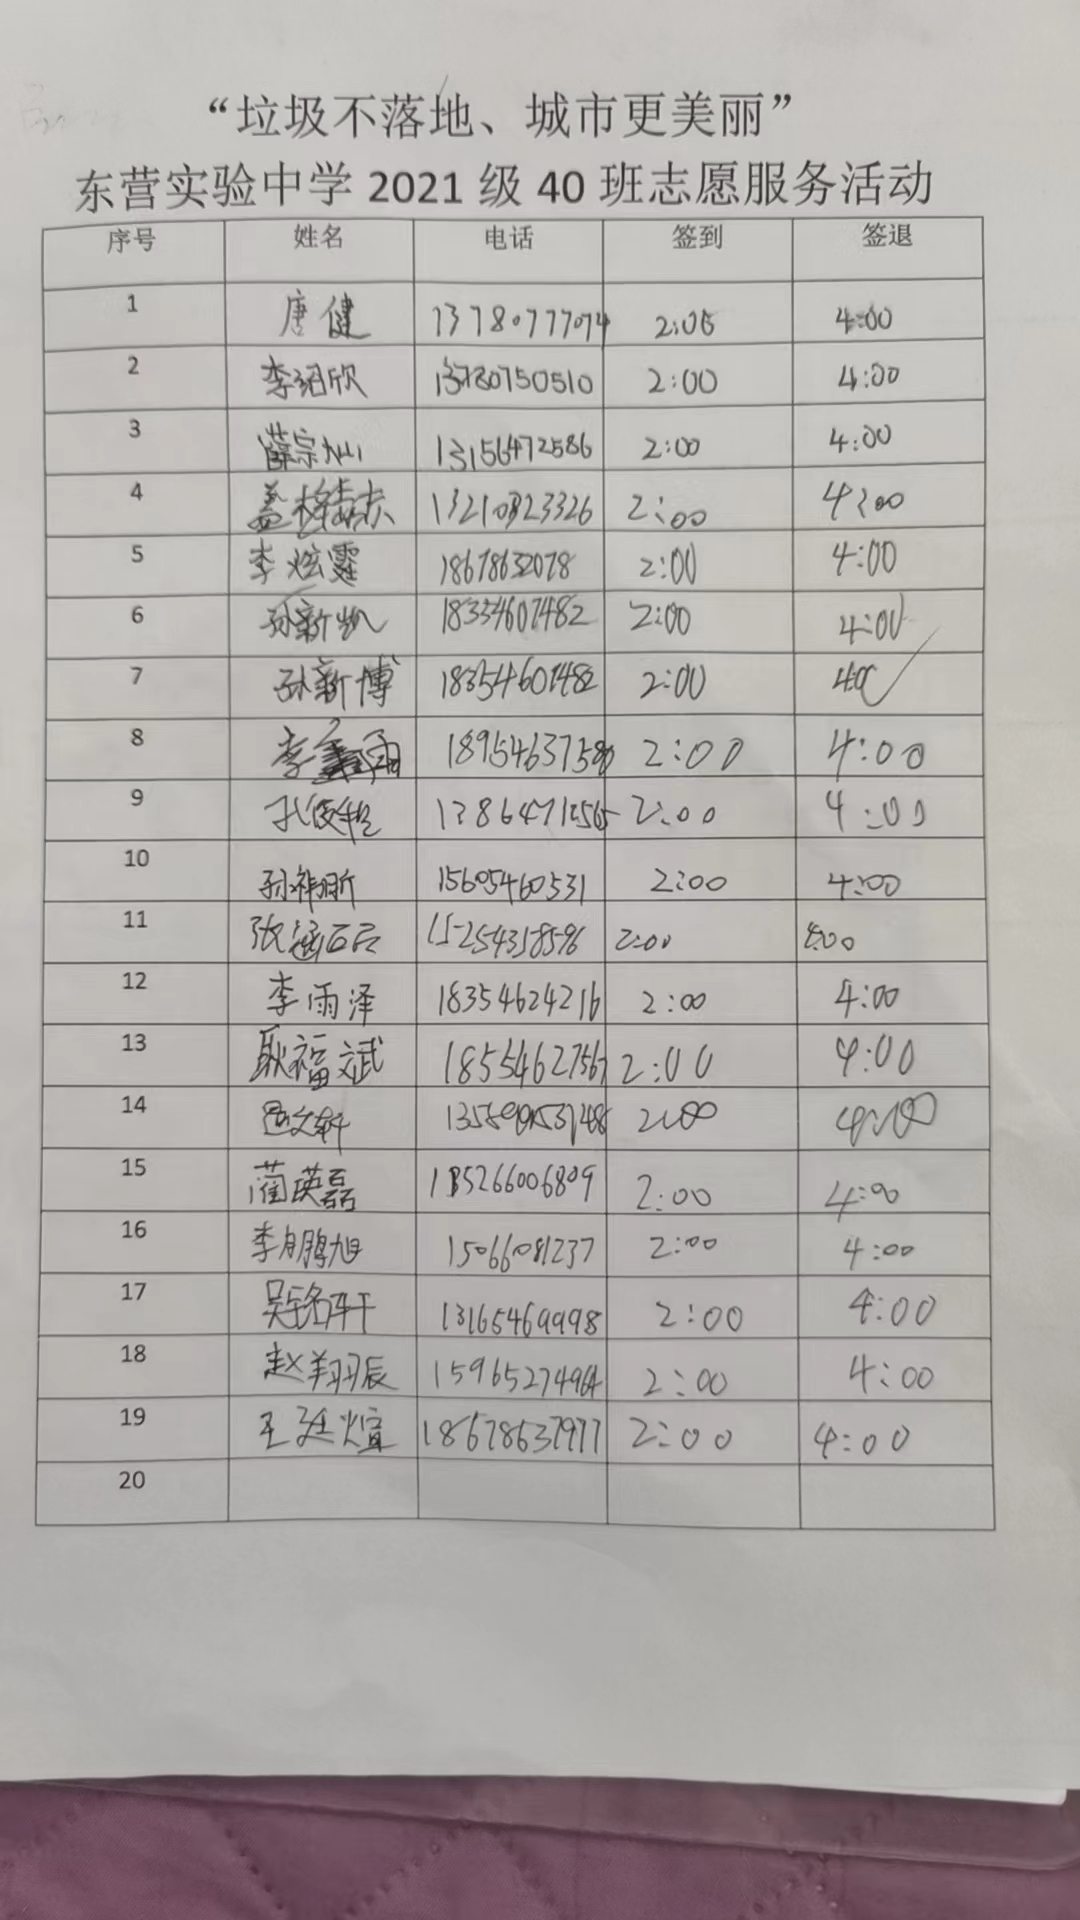 “垃圾不落地、城市更美丽”
东营实验中学 2021 级 40 班志愿服务活动
序号 姓名 电话 签到 签退
1 唐健 13780777074 2:00 4:00
2 李绍欣 13780750510 2:00 4:00
3 薛宗灿 13156472586 2:00 4:00
4 13210823326 2:00 4:00
5 李炫霆 18678632078 2:00 4:00
6 孙新凯 18354607482 2:00 4:00
7 孙新博 18354607482 2:00 4:00
8 李鑫雨 2:00 4:00
9 2:00 4:00
10 15605460531 2:00 4:00
11 15254358596 2:00 4:00
12 李雨泽 18354624216 2:00 4:00
13 耿福斌 18554627567 2:00 4:00
14 2:00 4:00
15 蔺英磊 2:00 4:00
16 李鹏旭 15066081237 2:00 4:00
17 吴铭轩 13165469998 2:00 4:00
18 赵翔辰 15965274964 2:00 4:00
19 王廷煊 18678637977 2:00 4:00
20